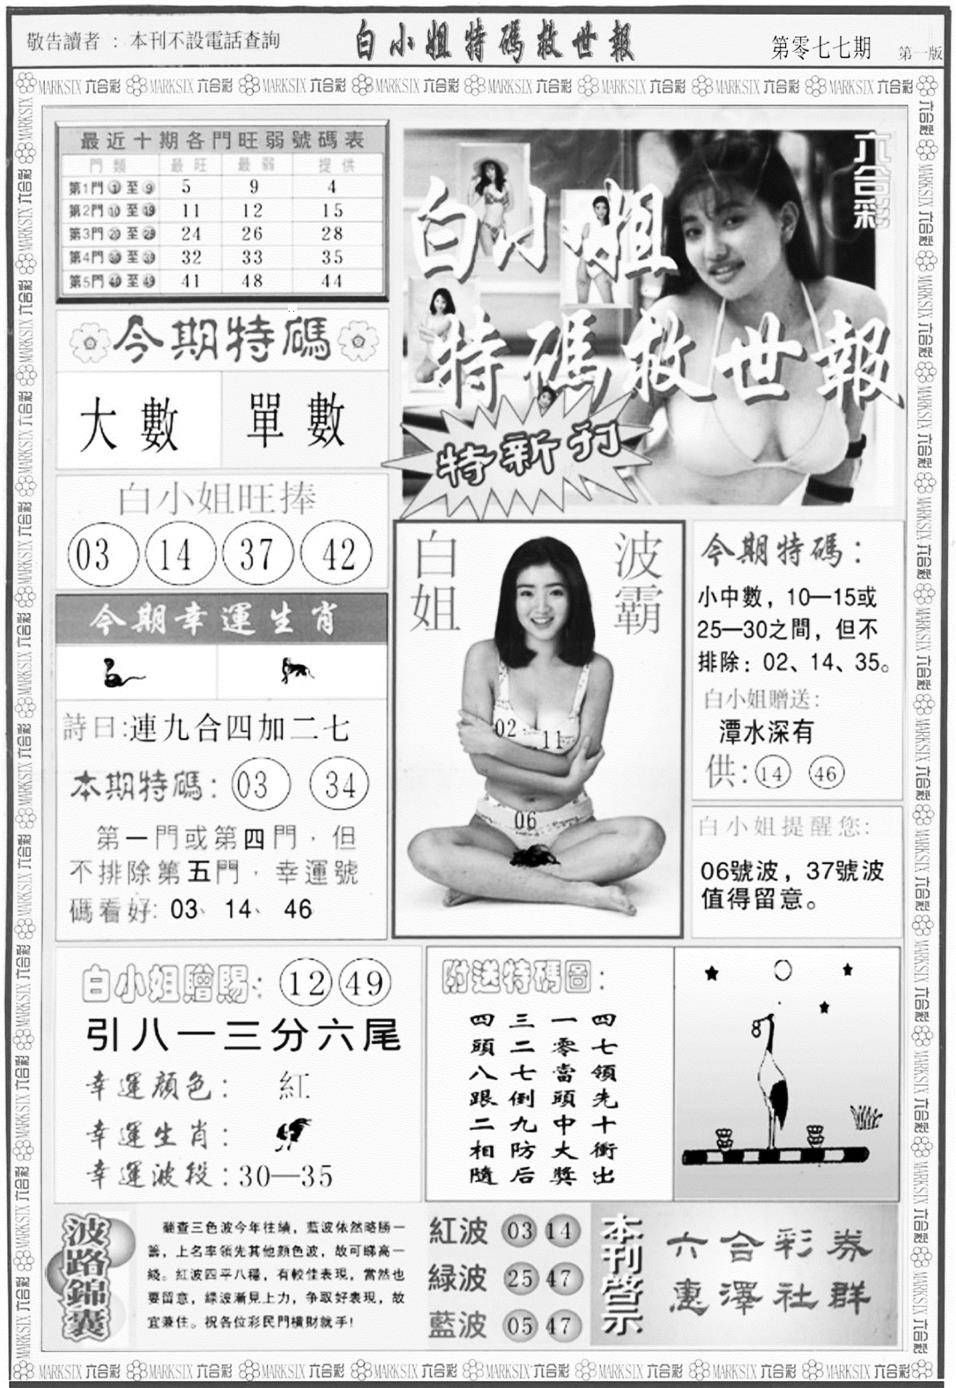 敬告讀者：本刊不設電話查詢
白小姐特碼救世報
第零七七期
第一版
MARKSIX 六合彩
最近十期各門旺弱號碼表
門類 最旺 最弱 提供
第1門 ① 至 ⑨ 5 9 4
第2門 ⑩ 至 ⑲ 11 12 15
第3門 ⑳ 至 ㉙ 24 26 28
第4門 ㉚ 至 ㊴ 32 33 35
第5門 ㊵ 至 ㊾ 41 48 44
今期特碼
大數 單數
白小姐旺捧
03 14 37 42
今期幸運生肖
詩曰:連九合四加二七
本期特碼: 03 34
第一門或第四門，但
不排除第五門，幸運號
碼看好: 03、14、46
六合彩
白小姐
特碼救世報
特新刊
白姐
波霸
02 11
06
今期特碼：
小中數，10—15或
25—30之間，但不
排除：02、14、35。
白小姐贈送:
潭水深有
供: 14 46
白小姐提醒您:
06號波，37號波
值得留意。
白小姐贈賜: 12 49
引八一三分六尾
幸運顏色：紅
幸運生肖：
幸運波段:30—35
附送特碼圖：
四七領先十衝出
一零當頭中大獎
三二七倒九防后
四頭八跟二相隨
8
波路錦囊
翻查三色波今年往績，藍波依然略勝一
籌，上名率領先其他顏色波，故可睇高一
綫。紅波四平八穩，有較佳表現，當然也
要留意，綠波漸見上力，争取好表現，故
宜兼住。祝各位彩民門橫財就手!
紅波 03 14
綠波 25 47
藍波 05 47
本刊啓示
六合彩券
惠澤社群